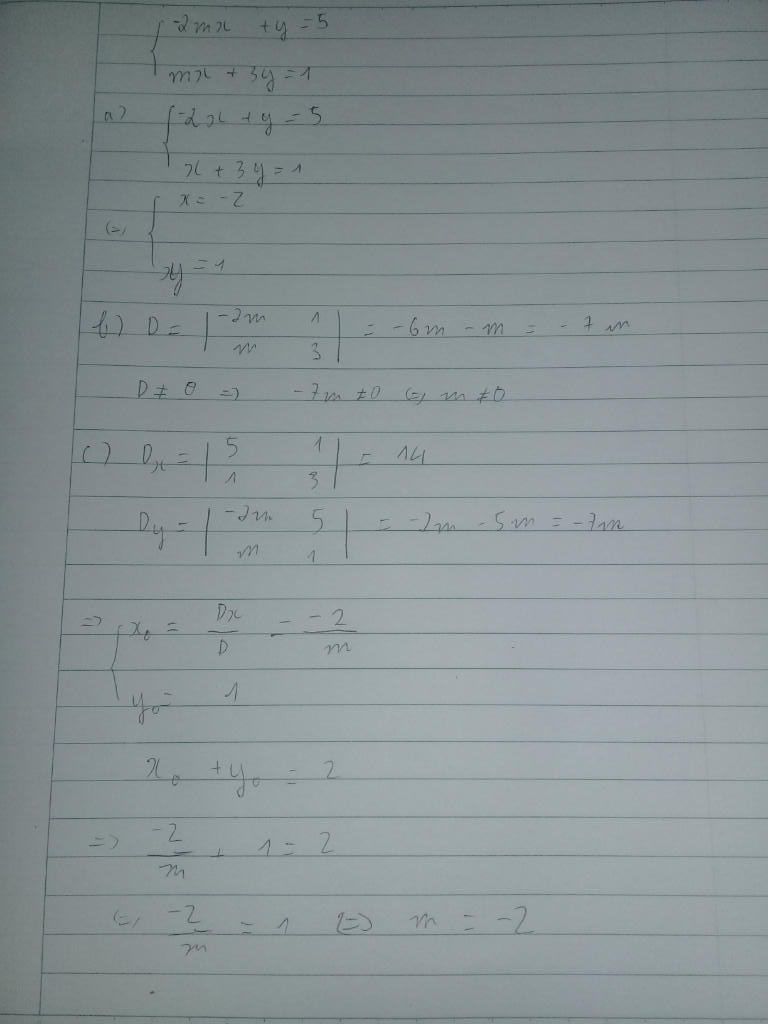 { -2mx + y = 5
mx + 3y = 1
a) { -2x + y = 5
x + 3y = 1
(=) { x = -2
y = 1
b) D = | -2m 1 | = -6m - m = -7m
m 3
D ≠ 0 => -7m ≠ 0 <=> m ≠ 0
c) Dx = | 5 1 | = 14
1 3
Dy = | -2m 5 | = -2m - 5m = -7m
m 1
=> { x₀ = Dx/D = -2/m
y₀ = 1
x₀ + y₀ = 2
=> -2/m + 1 = 2
<=> -2/m = 1 <=> m = -2